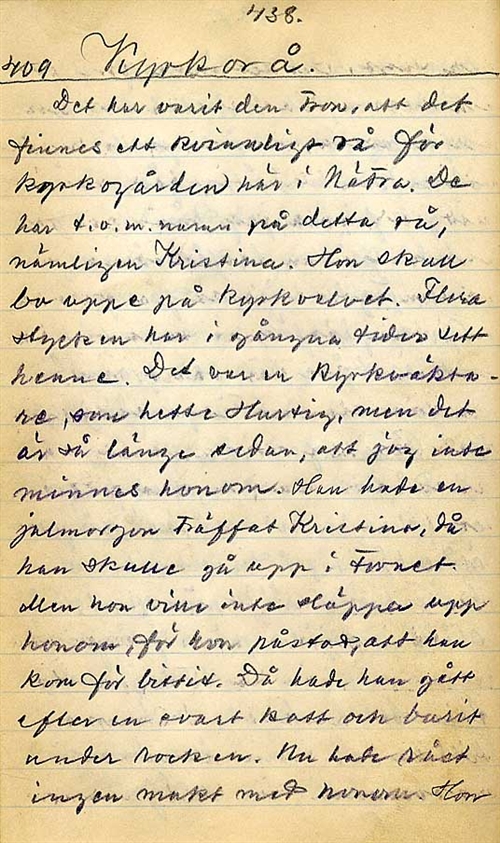 438.
409 Kyrkorå.
Det har varit den tron, att det
finnes ett kvinnligt rå för
kyrkogården här i Nätra. De
har t.o.m. namn på detta rå,
nämligen Kristina. Hon skall
bo uppe på kyrkvalvet. Flera
stycken har i gångna tider sett
henne. Det var en kyrkväkta-
re, som hette Hurtig, men det
är så länge sedan, att jag inte
minnes honom. Han hade en
julmorgon träffat Kristina, då
han skulle gå upp i tornet.
Men hon ville inte släppa upp
honom, för hon påstod, att han
kom för bittit. Då hade han gått
efter en svart katt och burit
under rocken. Nu hade rået
ingen makt med honom. Hon